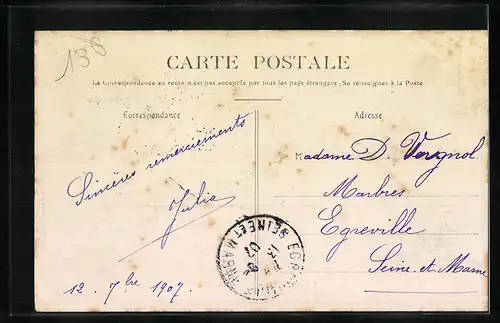 136
CARTE POSTALE
La Correspondance au recto n'est pas acceptée par tous les pays étrangers; Se renseigner à la Poste
Correspondance
Adresse
Sincères remerciements
Julia
12. 7bre 1907.
Madame D. Vergnol
Marbres
Egreville
Seine-et-Marne
SEINE ET MARNE